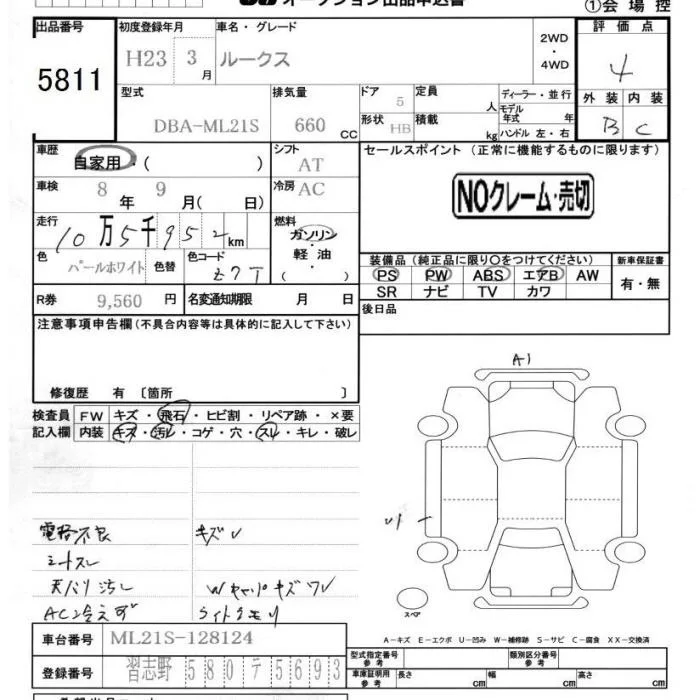 オークション出品申込書 ①会場控
出品番号 初度登録年月 車名・グレード 評価点
5811 H23 3月 ルークス 2WD・4WD 4
型式 排気量 ドア 定員 ディーラー・並行 外装 内装
DBA-ML21S 660 CC 5 人 モデル年式 年 B C
形状 HB 積載 kg ハンドル 左・右
車歴 シフト セールスポイント (正常に機能するものに限ります)
自家用・( ) AT
車検 8年 9月(日) 冷房 AC NOクレーム・売切
走行 10万5千952km 燃料 ガソリン・軽油・( )
色 パールホワイト 色替 色コード Z7T
装備品(純正品に限り○をつけてください) 新車保証書
PS PW ABS エアB AW 有・無
SR ナビ TV カワ
R券 9,560円 名変通知期限 月 日 後日品
注意事項申告欄(不具合内容等は具体的に記入して下さい)
修復歴 有〔箇所 〕
検査員 FW キズ・飛石・ヒビ割・リペア跡・×要
記入欄 内装 キズ・汚レ・コゲ・穴・スレ・キレ・破レ
A1
U1
電格不良 キズU
シートスレ
天バリ汚し Wキャパキズワレ
AC冷えず ライトクモリ
スペア
A-キズ E-エクボ U-凹み W-補修跡 S-サビ C-腐食 XX-交換済
車台番号 ML21S-128124
型式指定番号 参考 類別区分番号 参考
登録番号 習志野 580 7 5693
車庫証明用 参考 長さ cm 幅 cm 高さ cm